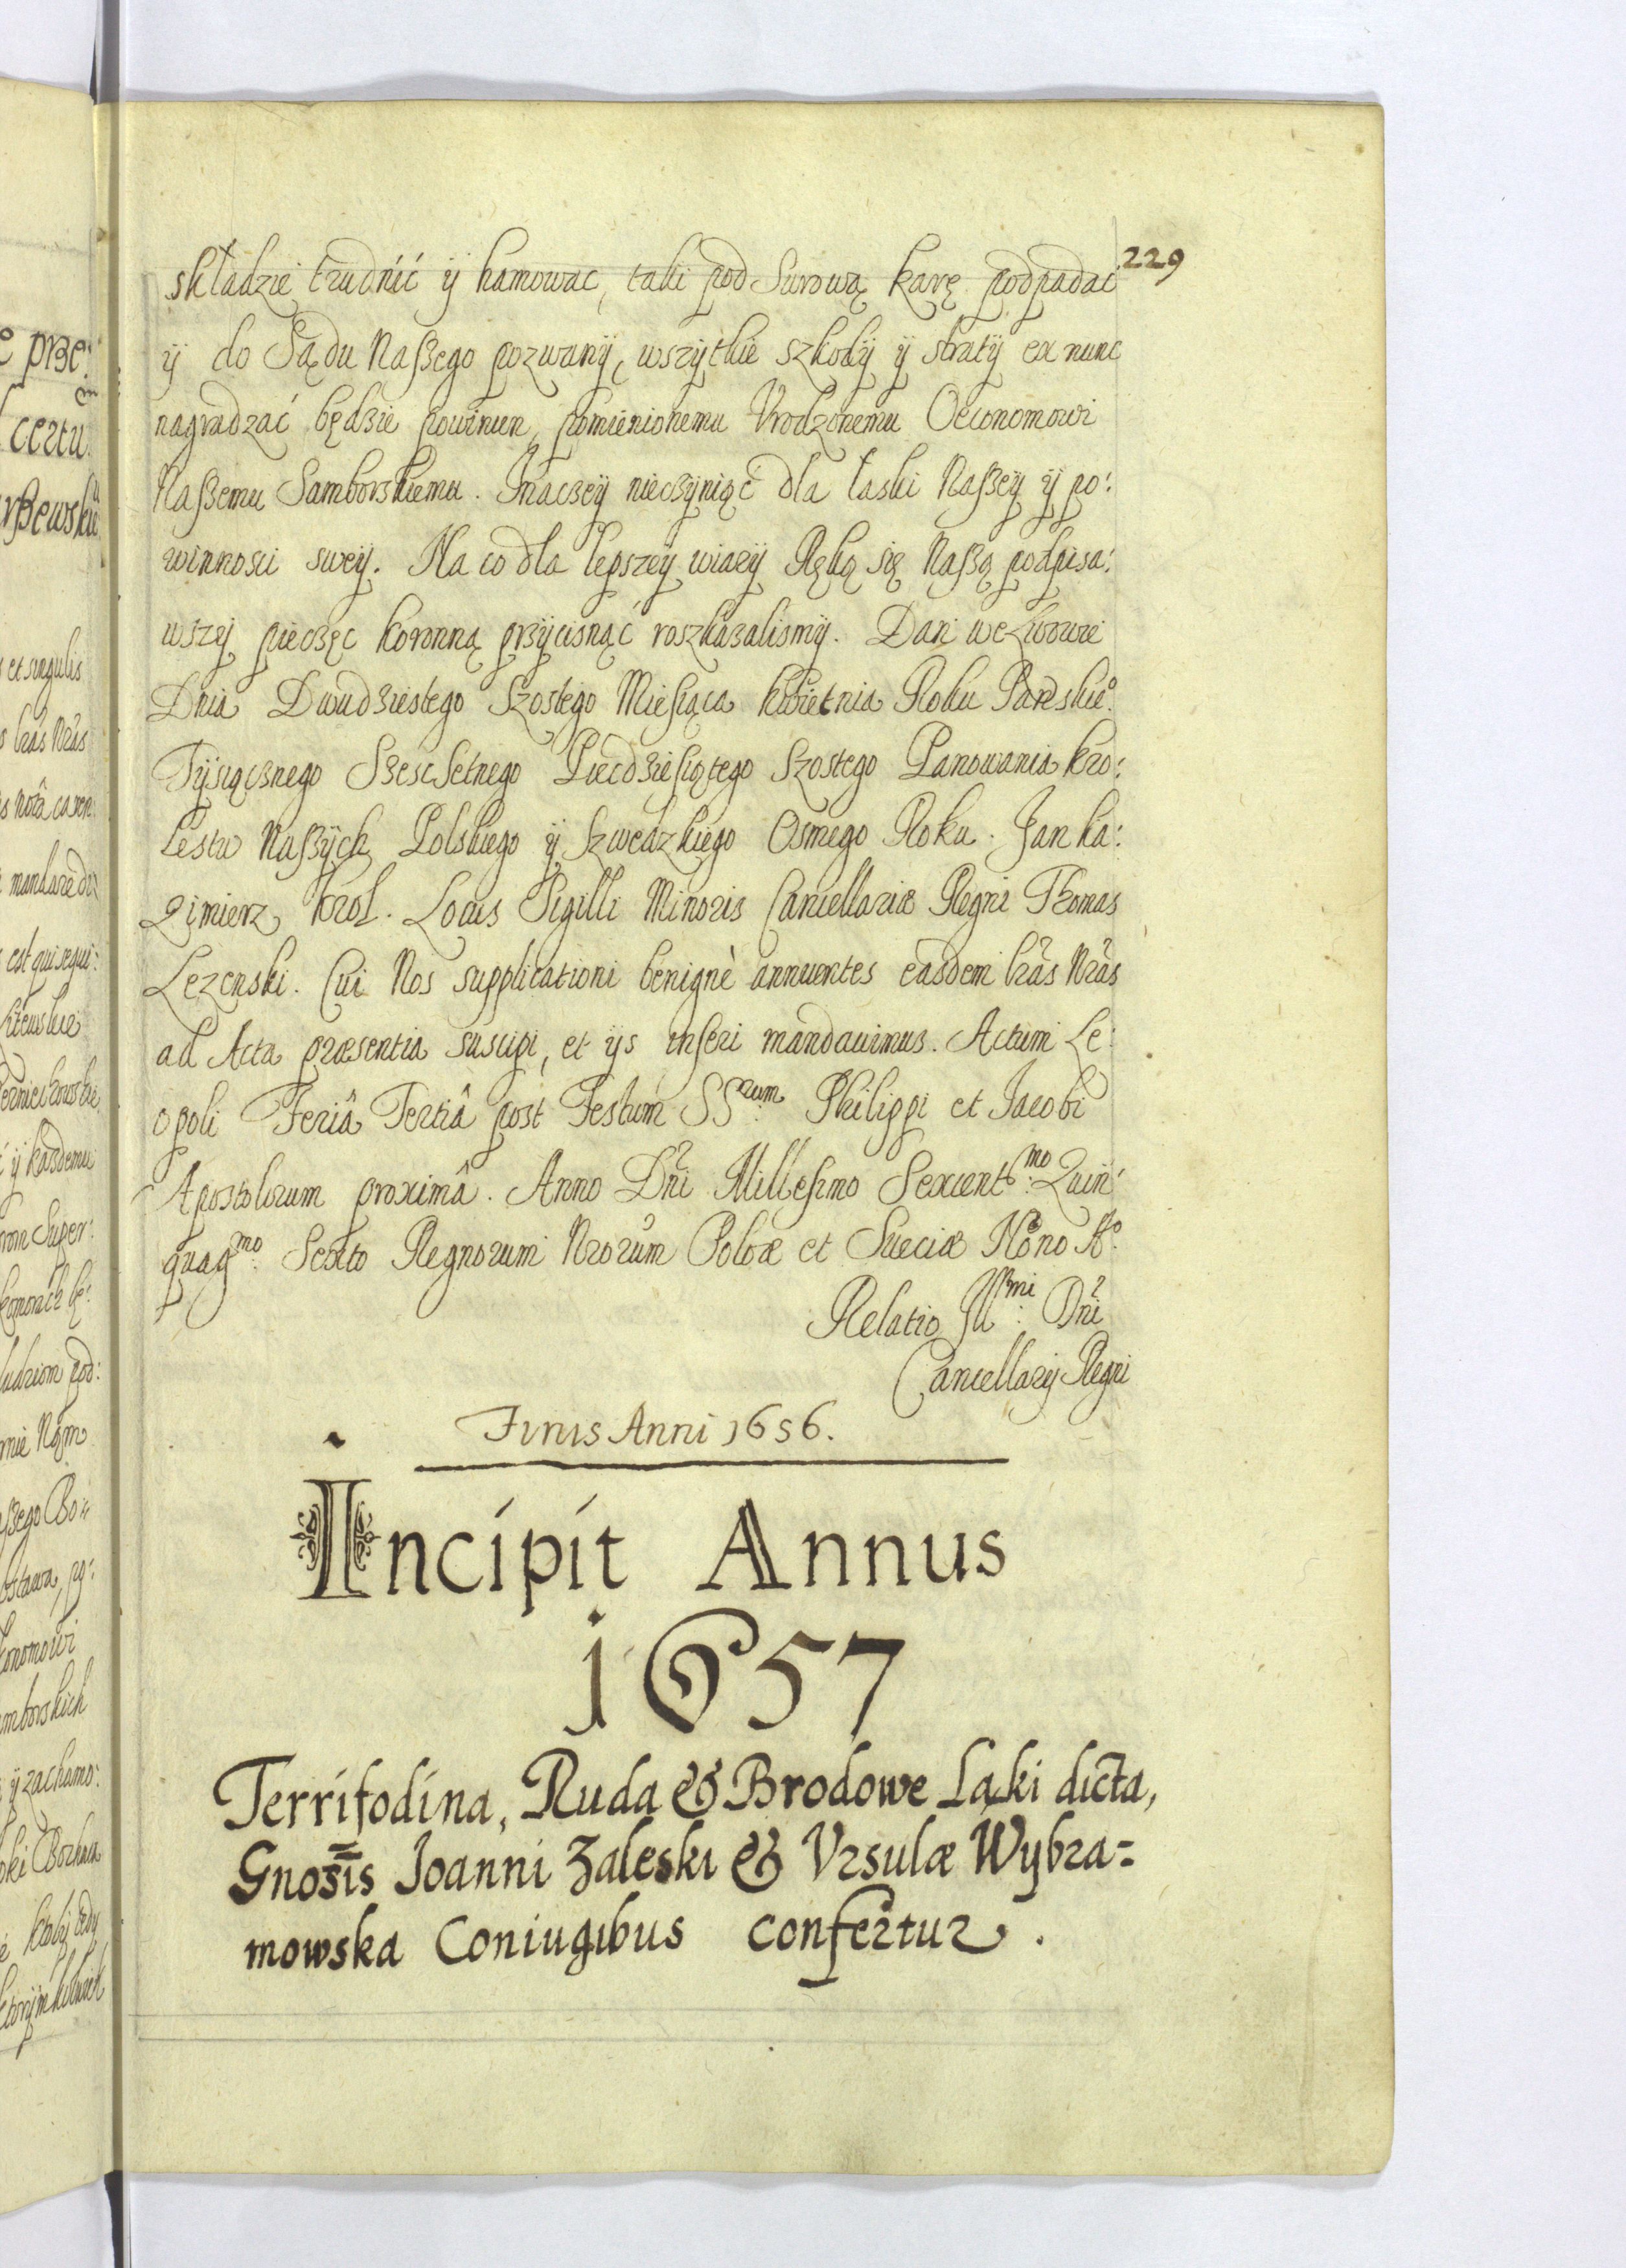 229
składzie trudnić ÿ hamowac, taki pod Surową karę podpadać
ÿ do Sądu Naszego pozwanÿ, wszÿtkie szkodÿ ÿ stratÿ ex nunc
nagradzać będzie powinien, pomienionemu Vrodzonemu Oeconomowi
Naszemu Samborskiemu. Inaczeÿ nieczÿniąc dla łaski Naszeÿ ÿ po:
winnosci sweÿ. Na co dla lepszeÿ wiarÿ Ręką się Naszą podpisa:
wszÿ pieczęc koronną przÿcisnąć roszkazalismÿ. Dan we Lwowie
Dnia Dwudziestego Szostego Miesiąca kwietnia Roku Panskieº.
Tÿsiącznego Szescsetnego Piecdziesiątego Szostego Panowania kro:
lestw Naszÿch Polskiego ÿ Szwedzkiego Osmego Roku. Jan ka:
zimierz krol. Locus Sigilli Minoris Cancellariæ Regni Thomas
Lezenski. Cui Nos supplicationi benignè annuentes easdem lr̃as Nr̃as
ad Acta præsentia suscipi, et ÿs inseri mandavimus. Actum Le:
opoli Feriâ Tertiâ post Festum SSrum. Philippi et Jacobi
Apostolorum proximâ. Anno Dñi Millesimo Sexcentmo. Quin:
quagmo. Sexto Regnorum Nrorum Polõæ et Sueciæ Nono Aº.
Relatio Illmi. Dñi
Cancellarÿ Regni
Finis Anni 1656.
Incipit Annus
1657
Terrifodina, Ruda & Brodowe Łąki dicta,
Gnos̄is Joanni Zaleski & Vrsulæ Wÿbra=
mowska Coniugibus confertur.
e prze:
certũ
rszewskiẽ
et singulis
lr̃as Nr̃as
est qui sequi:
ÿ każdemu
Super:
pod:
Nąm
szego Bo
konomowi
mborskich
ÿ zachamo: